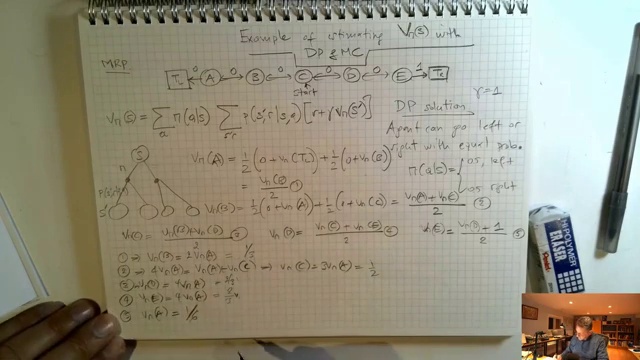 Example of estimating Vπ(s) with
DP & MC
MRP
T_L 0 A 0 B 0 C 0 D 0 E 1 T_R
start
Vπ(s) = Σ_a π(a|s) Σ_s',r p(s',r|s,a) [r + γ Vπ(s')]
DP solution
γ=1
Agent can go left or
right with equal prob.
π(a|s) = { 0.5, left
0.5 right
S
π
s'
Vπ(A) = 1/2 (0 + Vπ(T_L)) + 1/2 (0 + Vπ(B))
= Vπ(B)/2 ①
Vπ(B) = 1/2 (0 + Vπ(A)) + 1/2 (0 + Vπ(C)) = Vπ(A) + Vπ(C) / 2 ②
Vπ(C) = Vπ(B) + Vπ(D) / 2 ③ Vπ(D) = Vπ(C) + Vπ(E) / 2 ④ Vπ(E) = Vπ(D) + 1 / 2 ⑤
① ⇒ Vπ(B) = 2Vπ(A) = 1/3
② ⇒ 4Vπ(A) = Vπ(A) + Vπ(C) ⇒ Vπ(C) = 3Vπ(A) = 1/2
③ Vπ(D) = 4Vπ(A)
④ Vπ(E) = 5Vπ(A)
⑤ Vπ(A) = 1/6
HI-POLYMER
ERASER
Pentel